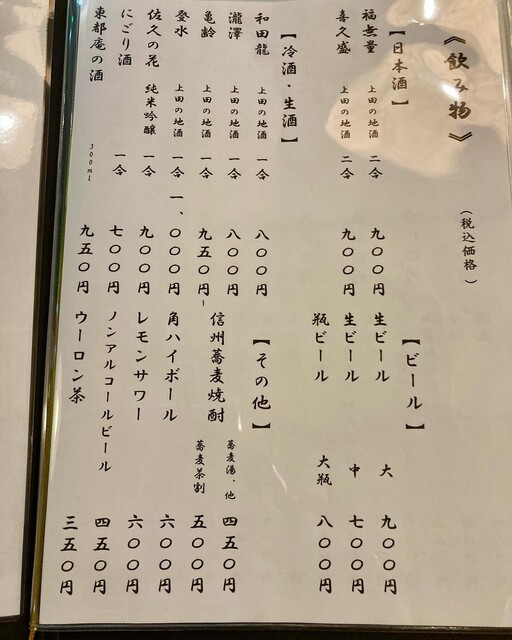 《飲み物》
(税込価格)
【日本酒】
福無量 上田の地酒 二合 九〇〇円
喜久盛 上田の地酒 二合 九〇〇円
【冷酒・生酒】
和田龍 上田の地酒 一合 八〇〇円
瀧澤 上田の地酒 一合 八〇〇円
亀齢 上田の地酒 一合 九五〇円~
登水 上田の地酒 一合 一、〇〇〇円
佐久の花 純米吟醸 一合 九〇〇円
にごり酒 一合 七〇〇円
東都庵の酒 300ml 九五〇円
【ビール】
生ビール 大 九〇〇円
生ビール 中 七〇〇円
瓶ビール 大瓶 八〇〇円
【その他】
信州蕎麦焼酎 蕎麦湯、他 四五〇円
蕎麦茶割 五〇〇円
角ハイボール 六〇〇円
レモンサワー 六〇〇円
ノンアルコールビール 四五〇円
ウーロン茶 三五〇円